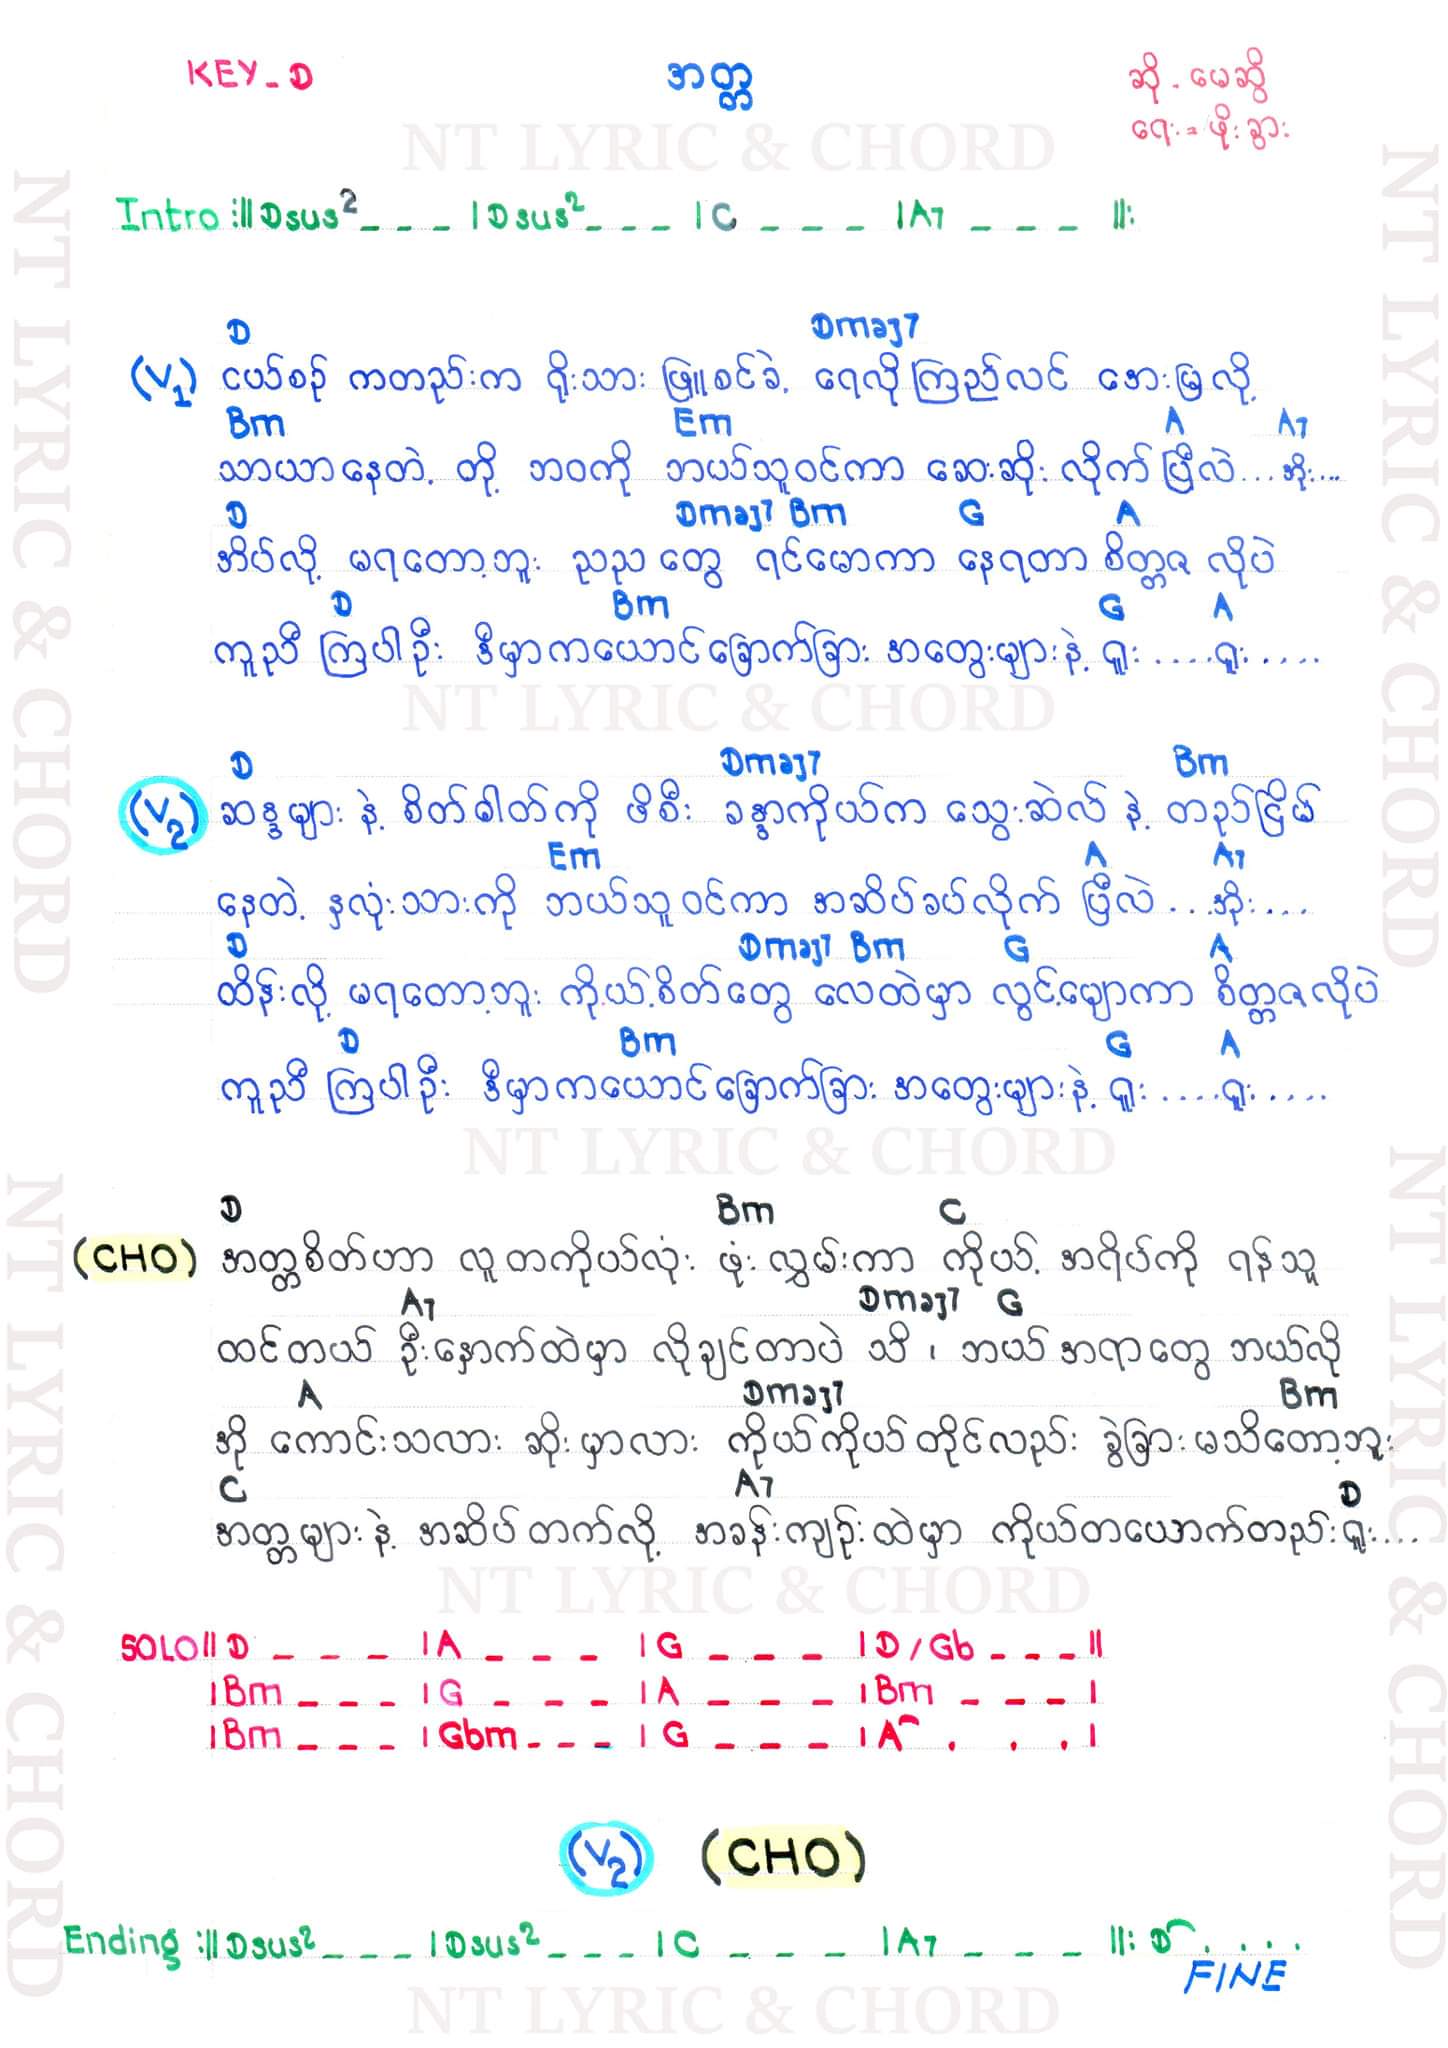 KEY - D
အတ္တ
ဆို - မေဆွိ
ရေး = ဖိုးခွား
NT LYRIC & CHORD
Intro :|| Dsus2 _ _ _ | Dsus2 _ _ _ | C _ _ _ | A7 _ _ _ ||:
D Dmaj7
(V1) ငယ်စဉ် ကတည်းက ရိုးသား ဖြူစင်ခဲ့ ရေလိုကြည်လင် အေးမြလို့
Bm Em A A7
သာယာနေတဲ့ တို့ ဘဝကို ဘယ်သူဝင်ကာ ဆေးဆိုး လိုက် ပြီလဲ... အိုး...
D Dmaj7 Bm G A
အိပ်လို့ မရတော့ဘူး ညညတွေ ရင်မောကာ နေရတာ စိတ္တဇ လိုပဲ
D Bm G A
ကူညီ ကြပါဦး ဒီမှာကယောင်ခြောက်ခြား အတွေးများနဲ့ ရူး ....ရူး.....
NT LYRIC & CHORD
D Dmaj7 Bm
(V2) ဆန္ဒများ နဲ့ စိတ်ဓါတ်ကို ဖိစီး ခန္ဓာကိုယ်က သွေးဆဲလ် နဲ့ တည်ငြိမ်
Em A A7
နေတဲ့ နှလုံးသားကို ဘယ်သူဝင်ကာ အဆိပ်ခပ်လိုက် ပြီလဲ ...အိုး....
D Dmaj7 Bm G A
ထိန်းလို့ မရတော့ဘူး ကိုယ့်စိတ်တွေ လေထဲမှာ လွင့်မျောကာ စိတ္တဇလိုပဲ
D Bm G A
ကူညီ ကြပါဦး ဒီမှာကယောင်ခြောက်ခြား အတွေးများနဲ့ ရူး ....ရူး.....
NT LYRIC & CHORD
D Bm C
(CHO) အတ္တစိတ်ဟာ လူတကိုယ်လုံး ဖုံးလွှမ်းကာ ကိုယ့် အရိပ်ကို ရန်သူ
A7 Dmaj7 G
ထင်တယ် ဦးနှောက်ထဲမှာ လိုချင်တာပဲ သိ၊ ဘယ်အရာတွေ ဘယ်လို
A Dmaj7 Bm
အို ကောင်းသလား ဆိုးမှာလား ကိုယ်ကိုယ်တိုင်လည်း ခွဲခြားမသိတော့ဘူး
C A7 D
အတ္တများနဲ့ အဆိပ်တက်လို့ အခန်းကျဉ်းထဲမှာ ကိုယ်တယောက်တည်းရူး....
NT LYRIC & CHORD
SOLO || D _ _ _ | A _ _ _ | G _ _ _ | D/Gb _ _ _ ||
| Bm _ _ _ | G _ _ _ | A _ _ _ | Bm _ _ _ |
| Bm _ _ _ | Gbm _ _ _ | G _ _ _ | A . . . |
(V2) (CHO)
Ending :|| Dsus2 _ _ _ | Dsus2 _ _ _ | C _ _ _ | A7 _ _ _ ||: D . . . .
FINE
NT LYRIC & CHORD
NT LYRIC & CHORD
NT LYRIC & CHORD
NT LYRIC & CHORD
NT LYRIC & CHORD